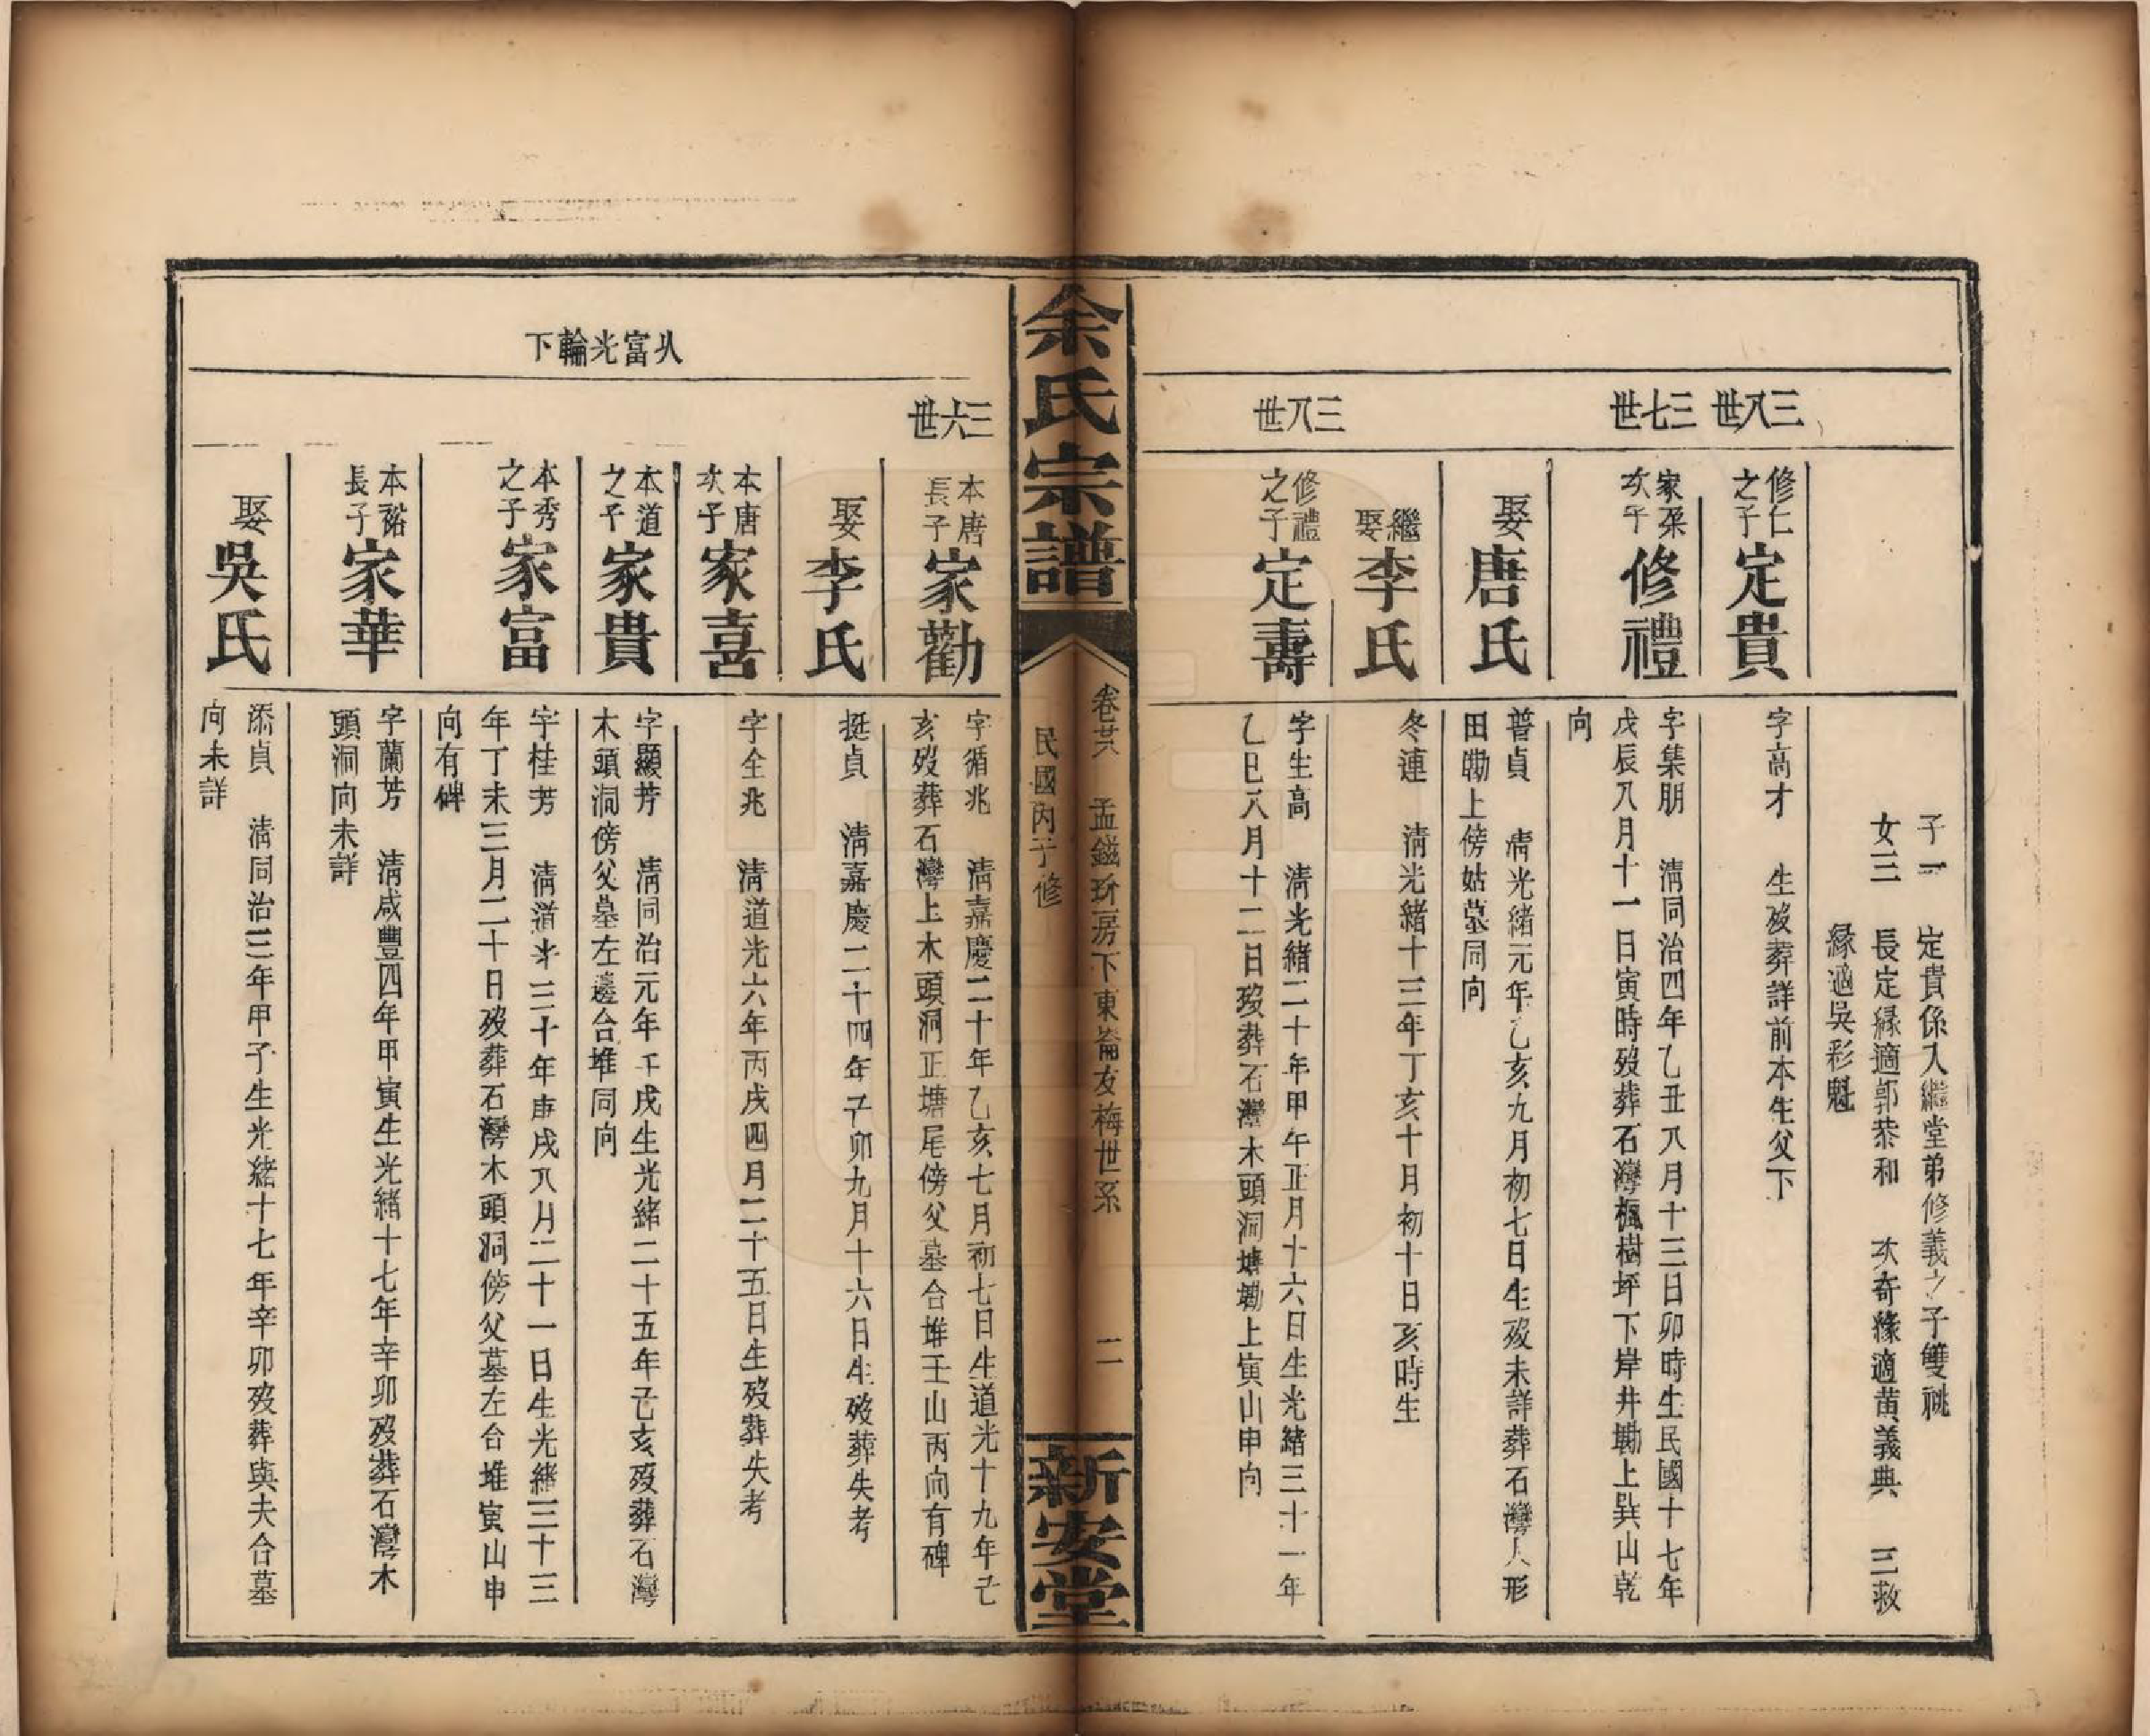 三八世
三七世
三八世
子一　定貴係入繼堂弟修義之子雙祧
女三　長定緣適郭恭和　次奇緣適黄義典　三救
緣適吳彩魁
修仁
之子
定貴
字高才　生殁葬詳前本生父下
家桼
次子
修禮
字集朋　清同治四年乙丑八月十三日卯時生民國十七年
戊辰八月十一日寅時殁葬石灣楓樹坪下岸井墈上巽山乾
向
娶
唐氏
普貞　清光緒元年乙亥九月初七日生殁未詳葬石灣人形
田墈上傍姑墓同向
繼
娶
李氏
冬連　清光緒十三年丁亥十月初十日亥時生
修禮
之子
定壽
字生高　清光緒二十年甲午正月十六日生光緒三十一年
乙巳八月十二日殁葬石灣木頭洞塘墈上寅山申向
余氏宗譜
卷廿六　孟鎡圻房下東崙友梅世系　二
民國丙子修
新安堂
从富光輪下
三六世
本唐
長子
家勸
字循兆　清嘉慶二十年乙亥七月初七日生道光十九年己
亥殁葬石灣上木頭洞正塘尾傍父墓合堆壬山丙向有碑
娶
李氏
挺貞　清嘉慶二十四年己卯九月十六日生殁葬失考
本唐
次子
家喜
字全兆　清道光六年丙戌四月二十五日生殁葬失考
本道
之子
家貴
字顯芳　清同治元年壬戌生光緒二十五年己亥殁葬石灣
木頭洞傍父墓左邊合堆同向
本秀
之子
家富
字桂芳　清道光三十年庚戌八月二十一日生光緒三十三
年丁未三月二十日殁葬石灣木頭洞傍父墓左合堆寅山申
向有碑
本裕
長子
家華
字蘭芳　清咸豐四年甲寅生光緒十七年辛卯殁葬石灣木
頭洞向未詳
娶
吳氏
添貞　清同治三年甲子生光緒十七年辛卯殁葬與夫合墓
向未詳